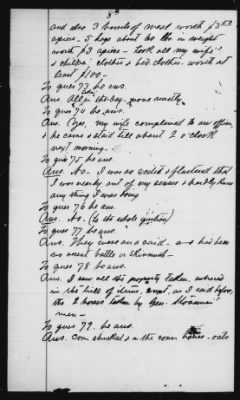 8th
and also 3 barrels of meat worth $3.50
apiece - 5 hogs about 200 lbs in weight
worth $3 apiece - took all my wife's
& children clothes & bed clothes. worth at
least $100 -
To ques 73 he ans
Ans. All in the day. none secretly -
To ques 74 he ans.
Ans. Yes, my wife complained to an officer
& he came & staid till about 2 o'clock
next morning.
To ques 75 he ans
Ans. No. I was so excited & flustered that
I was nearly out of my senses & hardly knew
any thing I was doing
To ques 76 he ans
Ans. No. (to the whole question)
To ques 77 he ans.
Ans. They were on a raid - had been
no recent battle or skirmish -
To ques 78 he ans.
Ans. I saw all the property taken,
in the bill of items, except, as I said before,
the 2 horses taken by Gen. Stoneman's
men -
To ques 79. he ans.
Ans. Corn shucked & in the corn house. oats